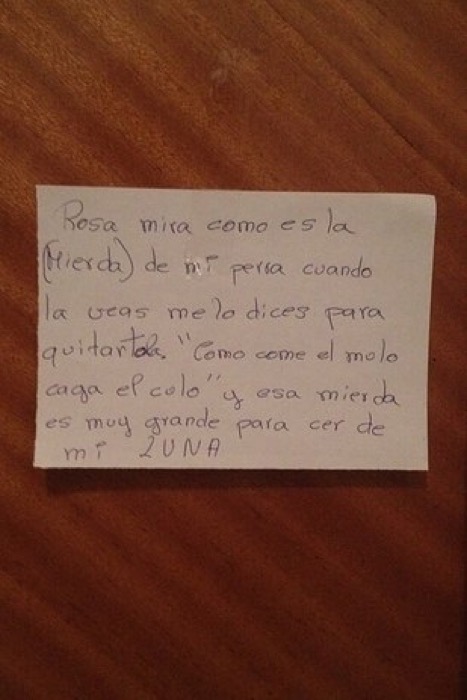 Rosa mira como es la
(Mierda) de mi perra cuando
la veas me lo dices para
quitartela. "Como come el mulo
caga el culo" y esa mierda
es muy grande para cer de
mi LUNA